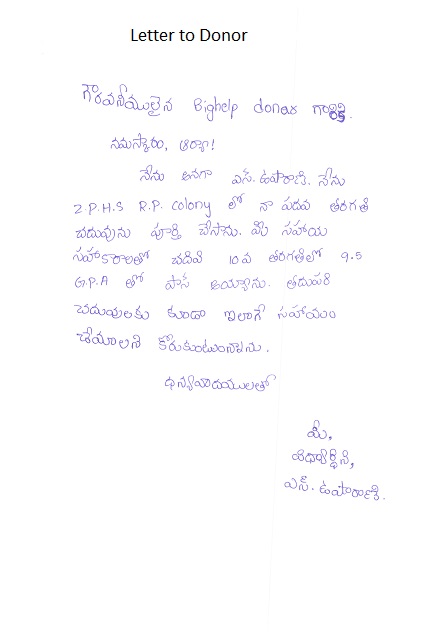 Letter to Donor
గౌరవనీయులైన Bighelp donar గారికి.
నమస్కారం, ఆర్యా!
నేను అనగా ఎస్. ఉషారాణి. నేను
Z.P.H.S R.P. Colony లో నా పదవ తరగతి
చదువును పూర్తి చేసాను. మీ సహాయ
సహకారాలతో చదివి 10వ తరగతిలో 9.5
G.P.A తో పాస్ అయ్యాను. తదుపరి
చదువులకు కూడా ఇలాగే సహాయం
చేయాలని కోరుకుంటున్నాను.
ధన్యవాదములతో
మీ,
విధ్యార్థిని,
ఎస్. ఉషారాణి.